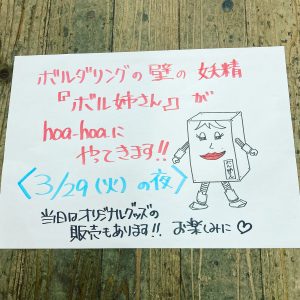 ボルダリングの壁の妖精
『ボル姉さん』が
hoa-hoaに
やってきます!!
〈3/29(火)の夜〉
当日はオリジナルグッズの
販売もあります!! お楽しみに♡